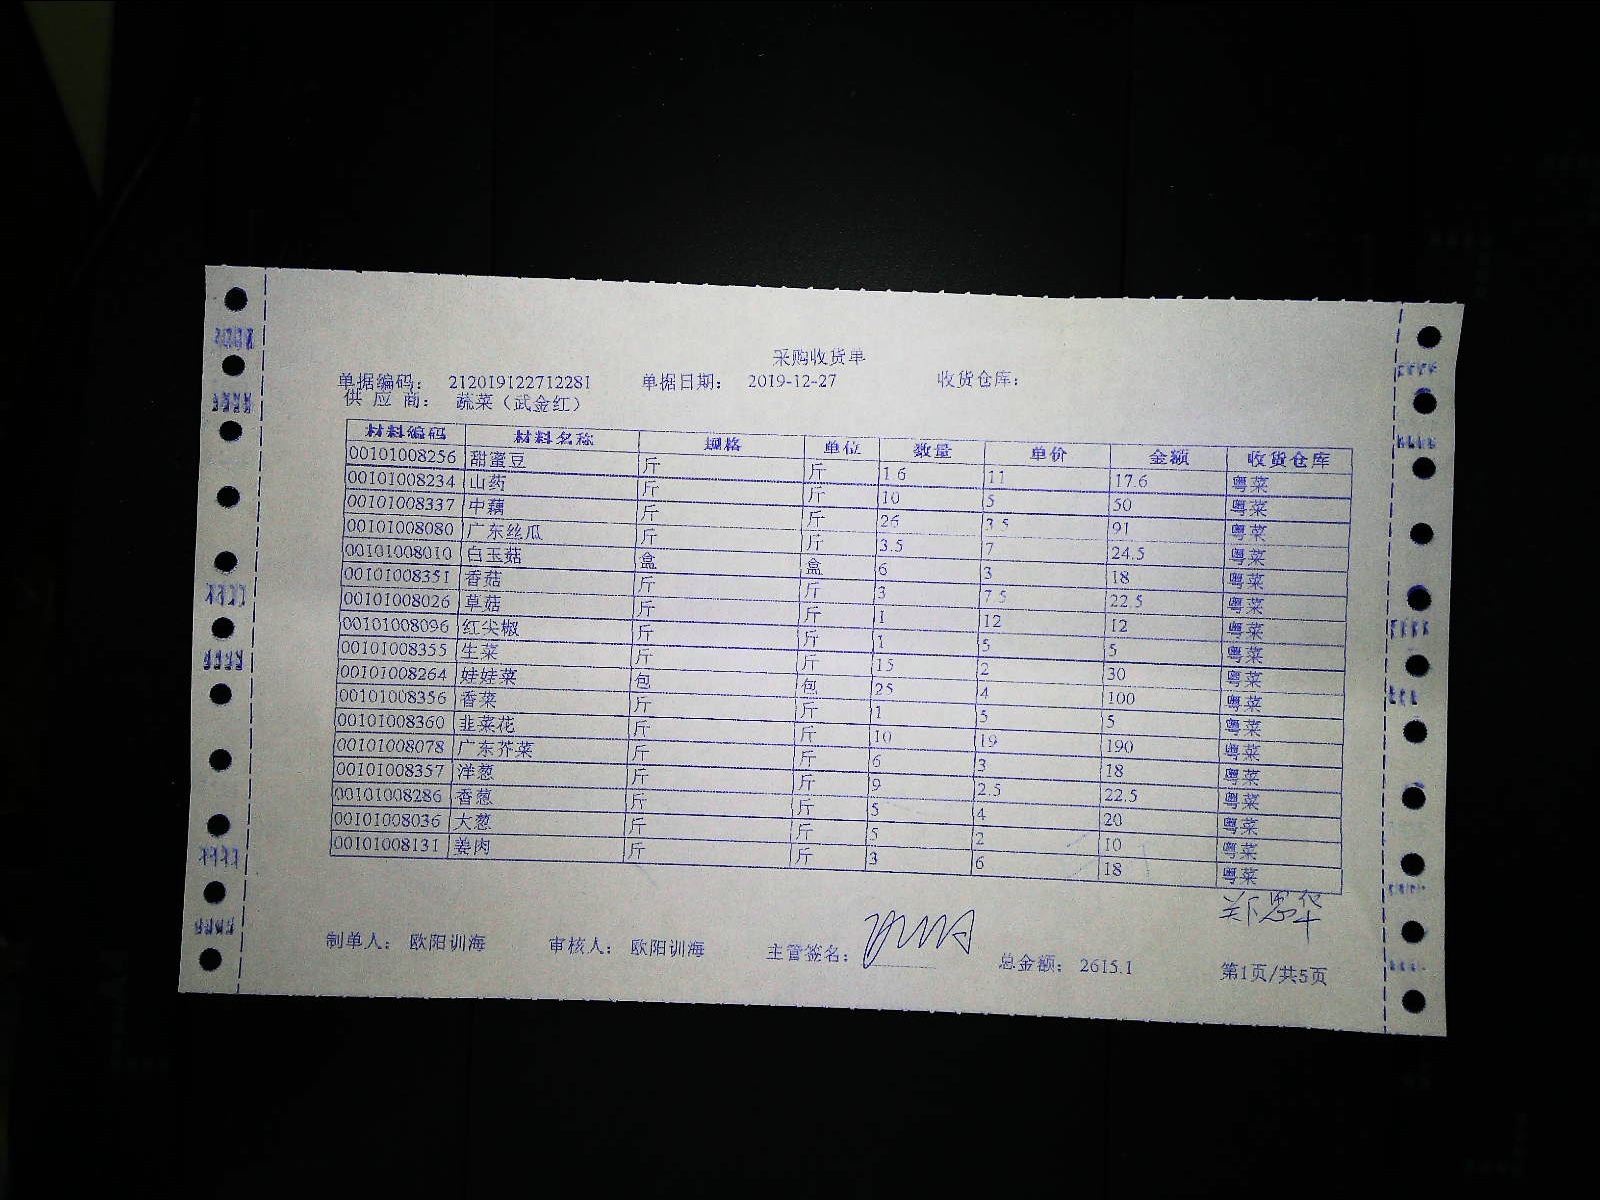 采购收货单
单据编码： 212019122712281 单据日期： 2019-12-27 收货仓库：
供 应 商： 蔬菜（武金红）
材料编码 材料名称 规格 单位 数量 单价 金额 收货仓库
00101008256 甜蜜豆 斤 斤 1.6 11 17.6 粤菜
00101008234 山药 斤 斤 10 5 50 粤菜
00101008337 中藕 斤 斤 26 3.5 91 粤菜
00101008080 广东丝瓜 斤 斤 3.5 7 24.5 粤菜
00101008010 白玉菇 盒 盒 6 3 18 粤菜
00101008351 香菇 斤 斤 3 7.5 22.5 粤菜
00101008026 草菇 斤 斤 1 12 12 粤菜
00101008096 红尖椒 斤 斤 1 5 5 粤菜
00101008355 生菜 斤 斤 15 2 30 粤菜
00101008264 娃娃菜 包 包 25 4 100 粤菜
00101008356 香菜 斤 斤 1 5 5 粤菜
00101008360 韭菜花 斤 斤 10 19 190 粤菜
00101008078 广东芥菜 斤 斤 6 3 18 粤菜
00101008357 洋葱 斤 斤 9 2.5 22.5 粤菜
00101008286 香葱 斤 斤 5 4 20 粤菜
00101008036 大葱 斤 斤 5 2 10 粤菜
00101008131 姜肉 斤 斤 3 6 18 粤菜
郑恩华
制单人： 欧阳训海 审核人： 欧阳训海 主管签名： 总金额： 2615.1 第1页/共5页